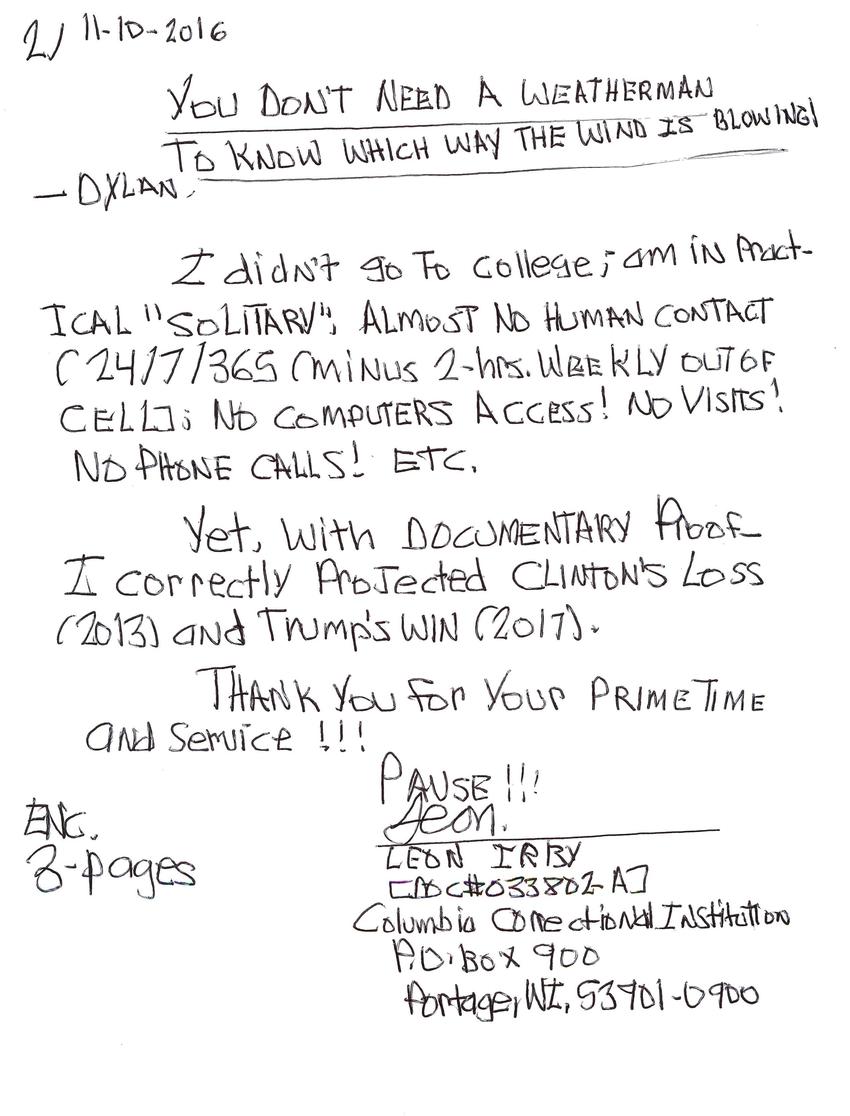 2) 11-10-2016
YOU DON'T NEED A WEATHERMAN
TO KNOW WHICH WAY THE WIND IS BLOWING!
— DYLAN.
I didn't go To college; am in Pract-
ICAL "SOLITARY"; ALMOST NO HUMAN CONTACT
(24/7/365 (MINUS 2-hrs. WEEKLY OUT OF
CELL]; NO COMPUTERS ACCESS! NO VISITS!
NO PHONE CALLS! ETC.
Yet, With DOCUMENTARY Proof—
I correctly ProJected CLINTON'S Loss
(2013) and Trump's WIN (2017).
THANK You for Your PRIME TIME
and Service !!!
PAUSE !!!
Leon.
ENC.
3-pages
LEON IRBY
[MDC#033802-A]
Columbia Correctional INSTitution
P.O. BOX 900
Portage, WI, 53901-0900